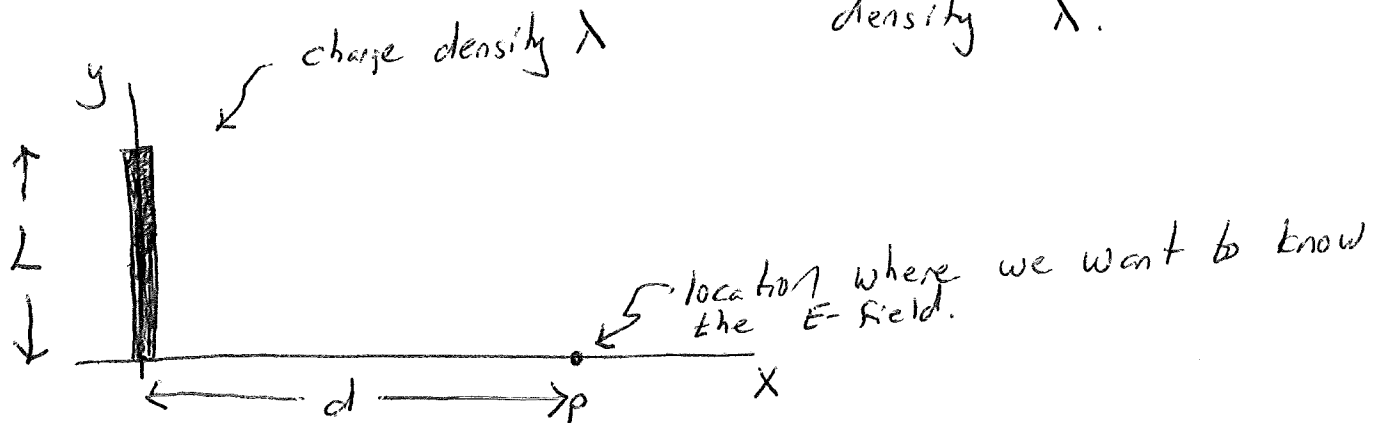 density λ.
charge density λ
y
L
location where we want to know
the E-field.
d
p
X